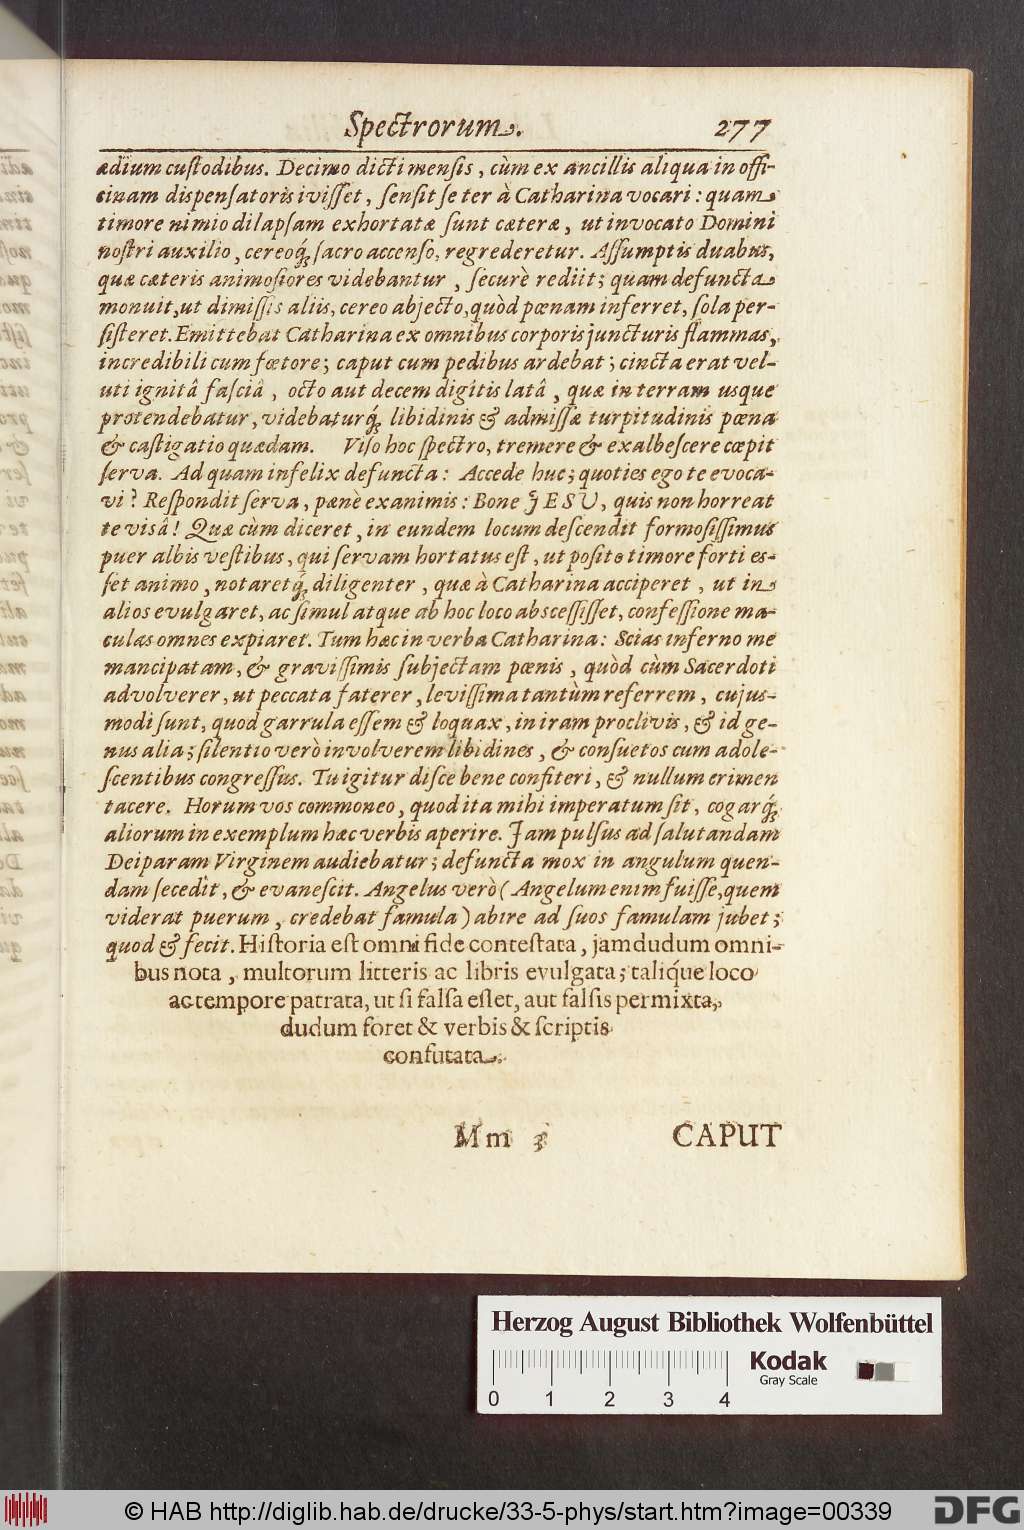 Spectrorum. 277
ædium custodibus. Decimo dicti mensis, cùm ex ancillis aliqua in offi-
cinam dispensatoris ivisset, sensit se ter à Catharina vocari: quam
timore nimio dilapsam exhortatæ sunt cæteræ, ut invocato Domini
nostri auxilio, cereoq́; sacro accenso, regrederetur. Assumptis duabus,
quæ cæteris animosiores videbantur, securè rediit; quam defuncta
monuit, ut dimissis aliis, cereo abjecto, quòd pœnam inferret, sola per-
sisteret. Emittebat Catharina ex omnibus corporis juncturis flammas,
incredibili cum fœtore; caput cum pedibus ardebat; cincta erat vel-
uti ignitâ fasciâ, octo aut decem digitis latâ, quæ in terram usque
protendebatur, videbaturq́; libidinis & admissæ turpitudinis pœna
& castigatio quædam. Viso hoc spectro, tremere & exalbescere cœpit
serva. Ad quam infelix defuncta: Accede huc; quoties ego te evoca-
vi? Respondit serva, pænè exanimis: Bone JESU, quis non horreat
te visâ! Quæ cùm diceret, in eundem locum descendit formosissimus
puer albis vestibus, qui servam hortatus est, ut posito timore forti es-
set animo, notaretq́; diligenter, quæ à Catharina acciperet, ut in
alios evulgaret, ac simul atque ab hoc loco abscessisset, confessione ma-
culas omnes expiaret. Tum hæc in verba Catharina: Scias inferno me
mancipatam, & gravissimis subjectam pœnis, quòd cùm Sacerdoti
advolverer, ut peccata faterer, levissima tantùm referrem, cujus-
modi sunt, quod garrula essem & loquax, in iram proclivis, & id ge-
nus alia; silentio verò involverem libidines, & consuetos cum adole-
scentibus congressus. Tu igitur disce bene confiteri, & nullum crimen
tacere. Horum vos commoneo, quod ita mihi imperatum sit, cogarq́;
aliorum in exemplum hæc verbis aperire. Jam pulsus ad salutandam
Deiparam Virginem audiebatur; defuncta mox in angulum quen-
dam secedit, & evanescit. Angelus verò (Angelum enim fuisse, quem
viderat puerum, credebat famula) abire ad suos famulam jubet;
quod & fecit. Historia est omni fide contestata, jamdudum omni-
bus nota, multorum litteris ac libris evulgata; taliq́ue loco
ac tempore patrata, ut si falsa esset, aut falsis permixta,
dudum foret & verbis & scriptis
confutata.
Mm 3 CAPUT
Herzog August Bibliothek Wolfenbüttel
Kodak
Gray Scale
0 1 2 3 4
© HAB http://diglib.hab.de/drucke/33-5-phys/start.htm?image=00339
DFG